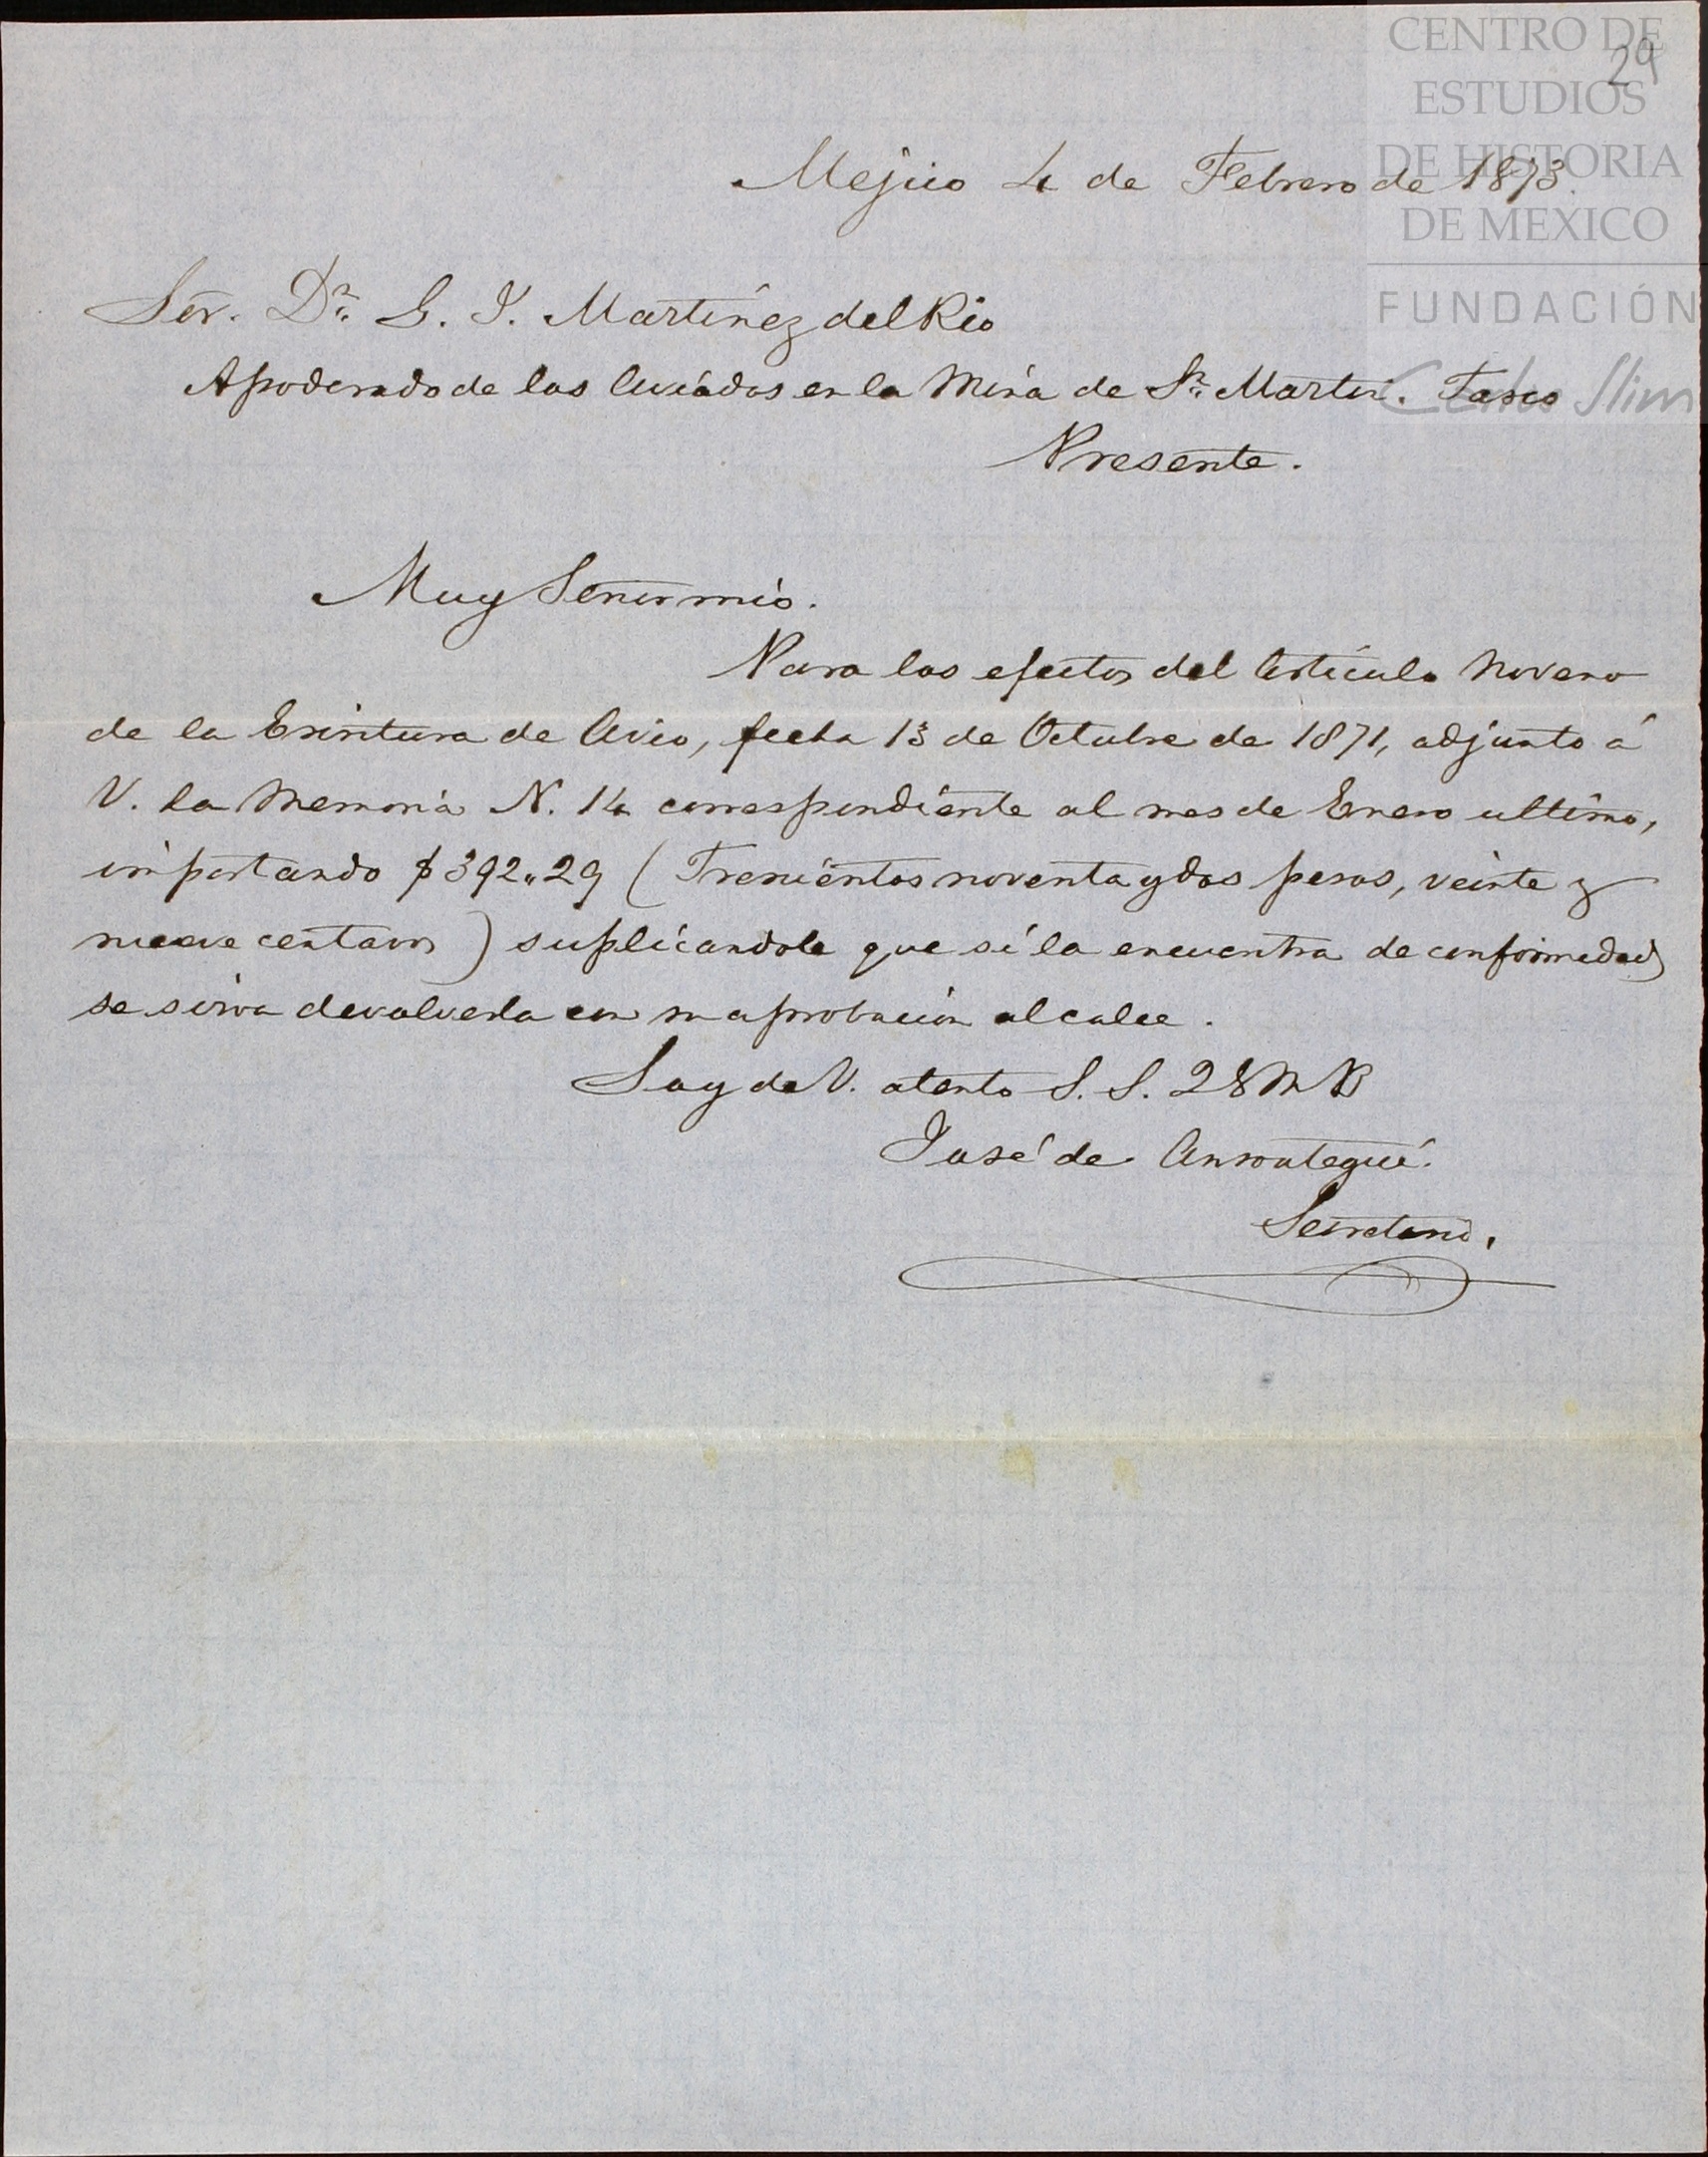 CENTRO DE
ESTUDIOS
DE HISTORIA
DE MEXICO
FUNDACIÓN
Carlos Slim
29
Mejico 4 de Febrero de 1873.
Sor. Dn. G. I. Martinez del Rio
Apoderado de los Aviados en la Mina de Sn. Martin. Tasco
Presente.
Muy Señor mio.
Para los efectos del Articulo Noveno
de la Escritura de Avio, fecha 13 de Octubre de 1871, adjunto á
V. la Memoria N. 14 correspondiente al mes de Enero ultimo,
importando $392„29 (Trescientos noventa y dos pesos, veinte y
nueve centavos) suplicandole que si la encuentra de conformidad
se sirva devolverla con su aprobacion al calce.
Soy de V. atento S. S. Q B M B
José de Ansoategui.
Secretario.